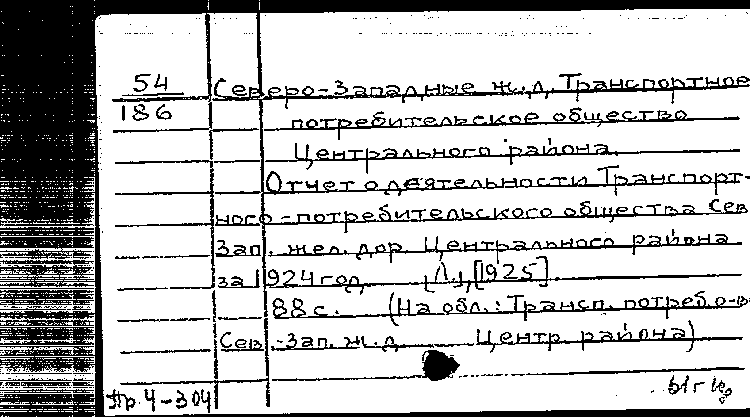 54
186
Северо-Западные ж.д. Транспортное
потребительское общество
Центрального района.
Отчет о деятельности Транспорт-
ного-потребительского общества Сев
Зап. жел. дор. Центрального района
за 1924 год. [Л.], [1925].
88 с. (На обл.: Трансп. потреб. о-в
Сев.-Зап. ж.д. Центр. района)
Пр. 4-304